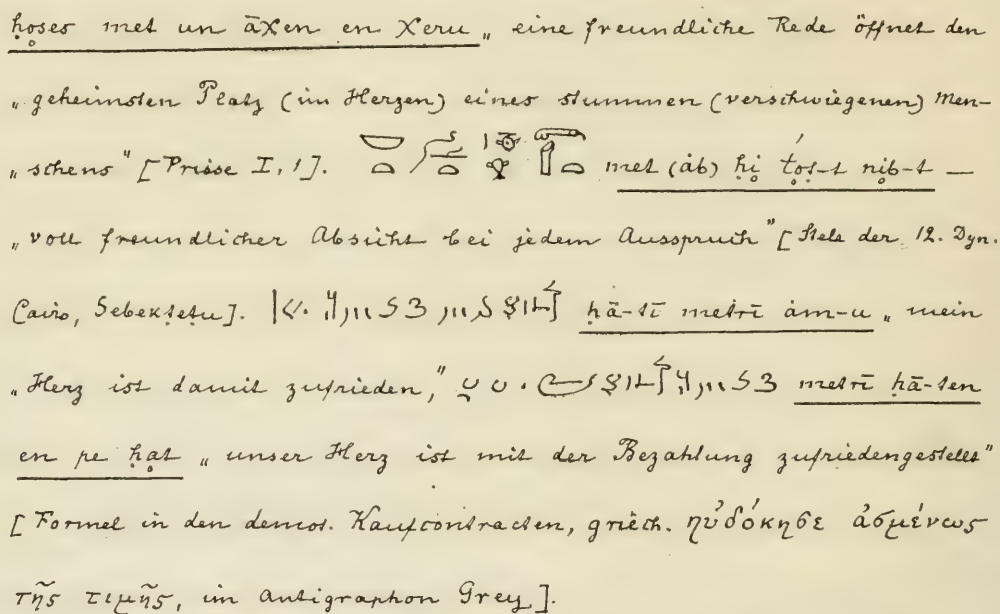 ḥoses met un āχen en χeru „ eine freundliche Rede öffnet den
„ geheimsten Platz (im Herzen) eines stummen (verschwiegenen) Men-
„ schens" [Prisse I, 1]. met (àb) ḥi ṭoṣ-t nib-t —
„ voll freundlicher Absicht bei jedem Ausspruch" [Stele der 12. Dyn.
Cairo, Sebekṭeṭu]. ḥā-tī metrī àm-u „ mein
„ Herz ist damit zufrieden," metrī ḥā-ten
en pe ḥat „ unser Herz ist mit der Bezahlung zufriedengestellt"
[Formel in den demot. Kaufcontracten, griech. ηὐδόκησε ἀσμένως
τῆς τιμῆς, im Antigraphon Grey].